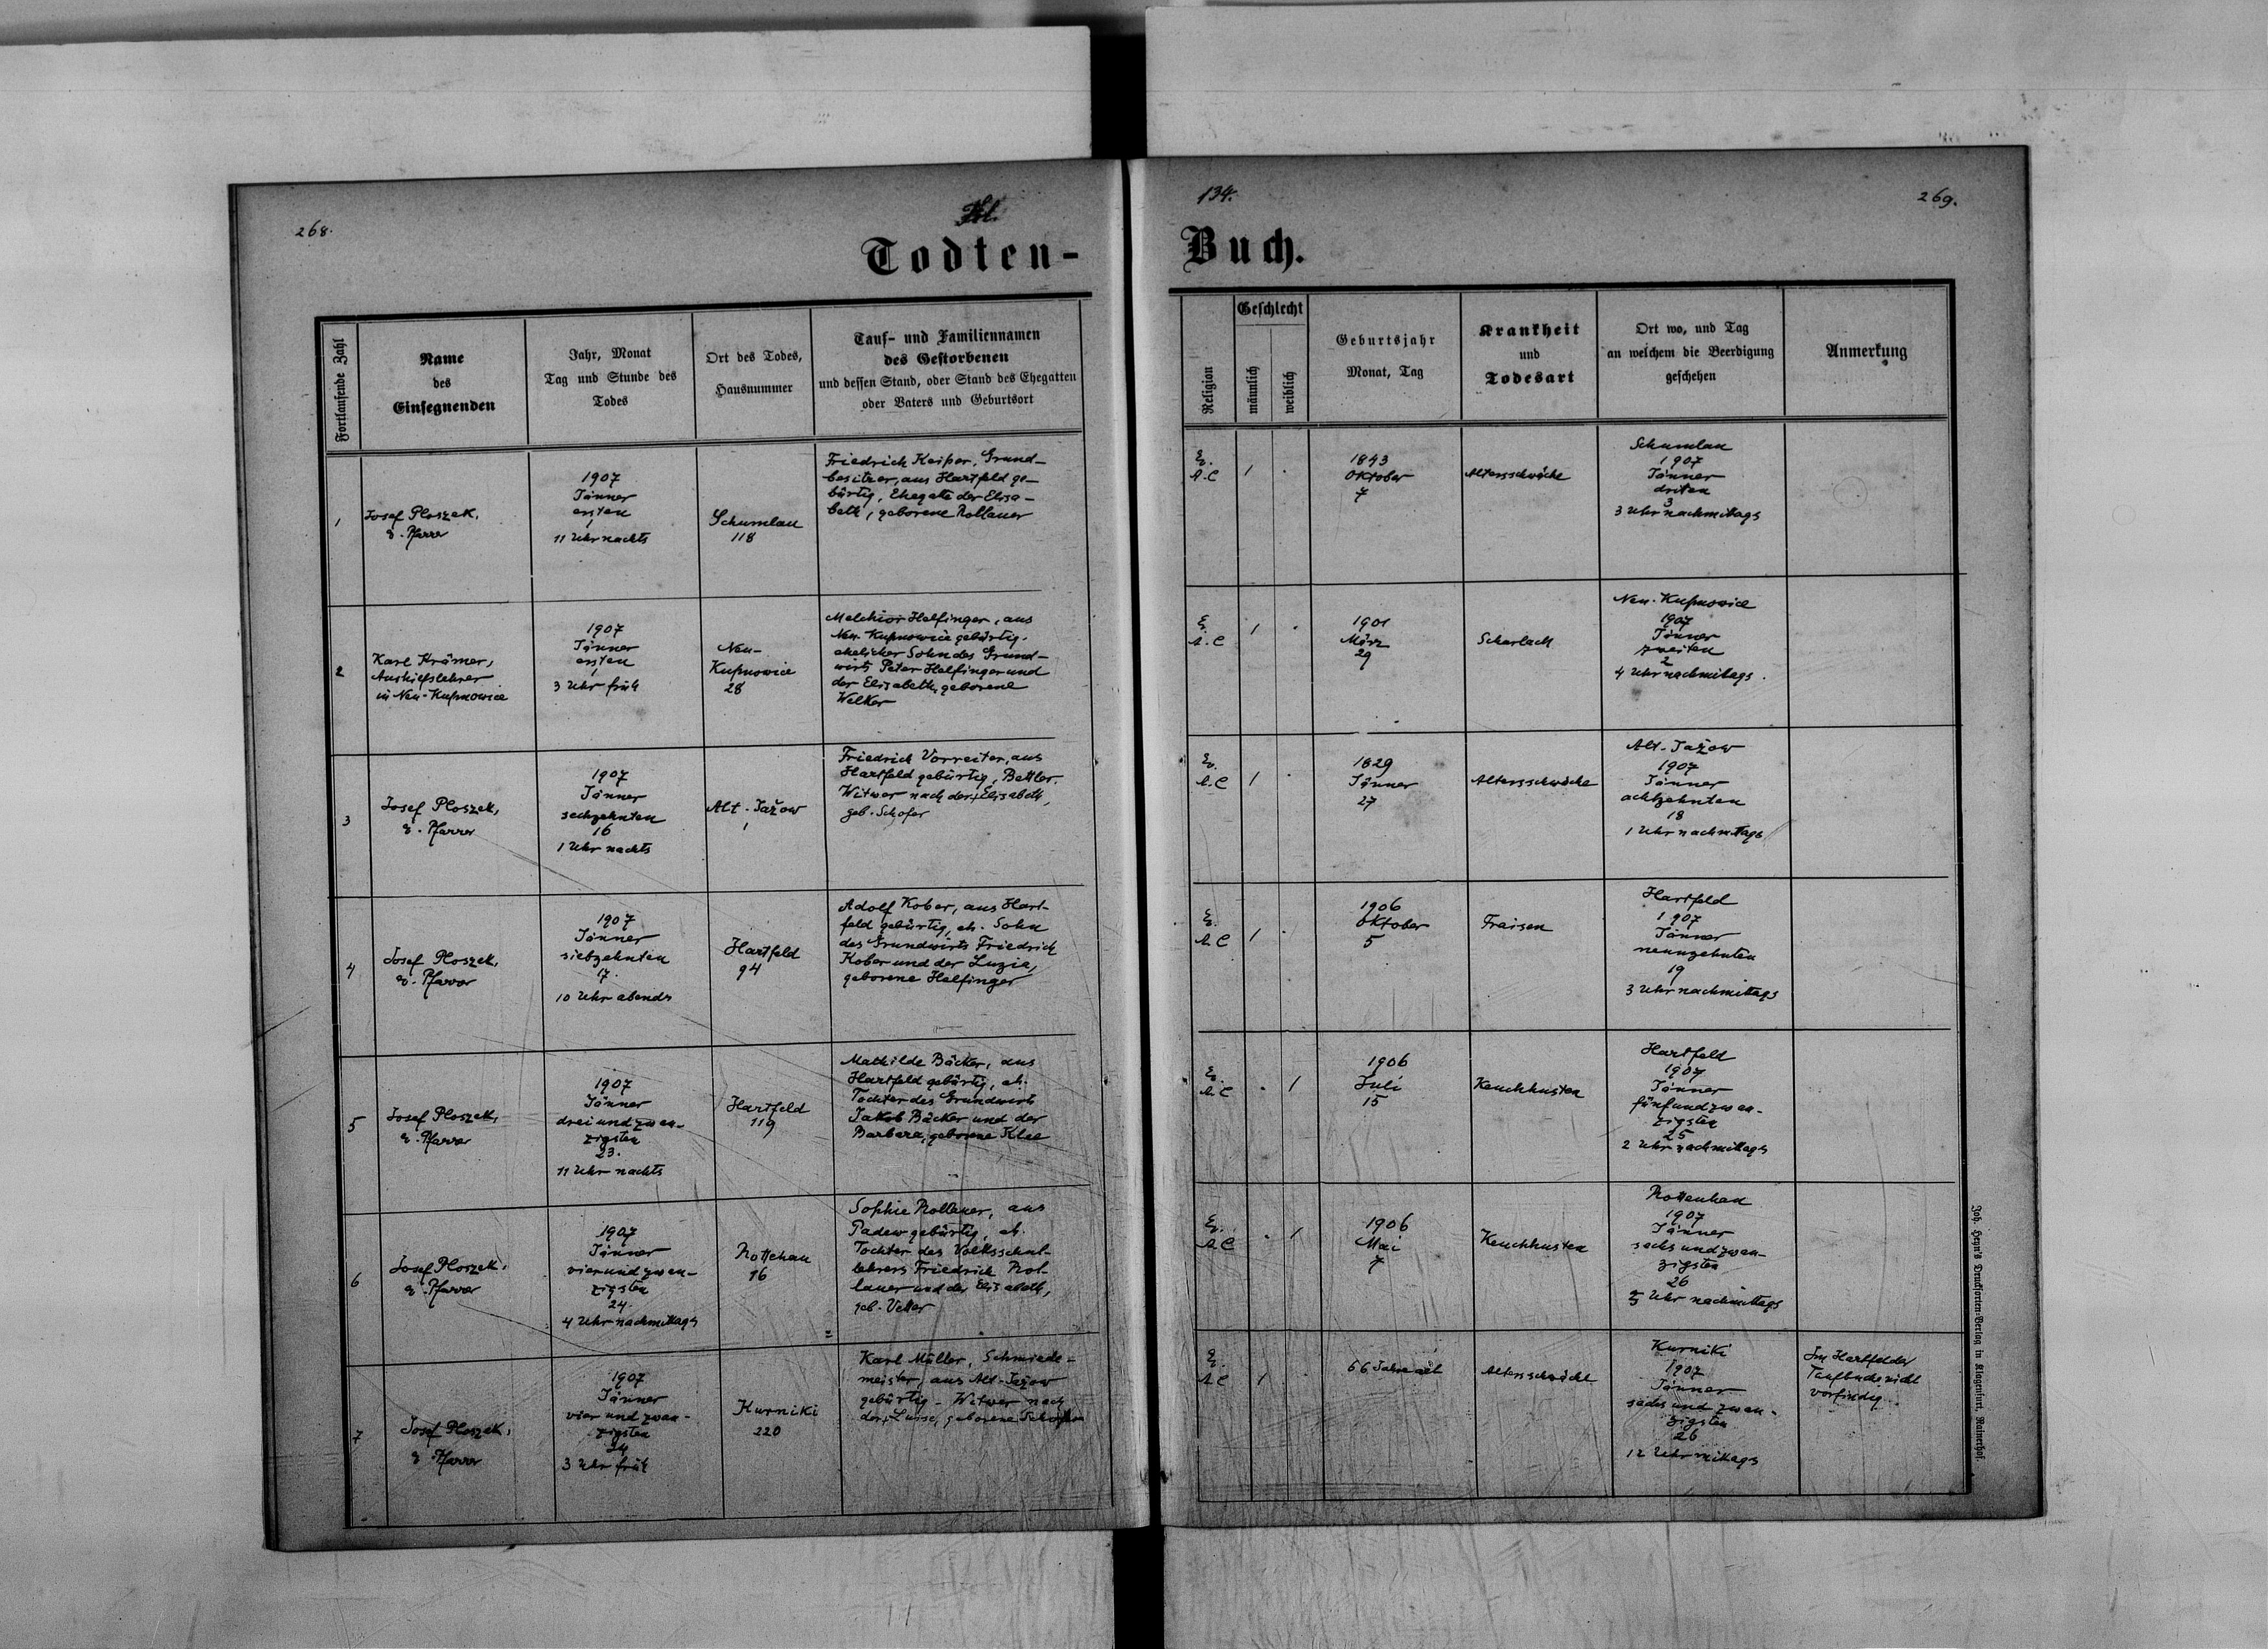 268.
Todten-
Fortlaufende Zahl
Name
des
Einsegnenden
Jahr, Monat
Tag und Stunde des
Todes
Ort des Todes,
Hausnummer
Tauf- und Familiennamen
des Gestorbenen
und dessen Stand, oder Stand des Ehegatten
oder Vaters und Geburtsort
1
Josef Ploszek,
e. Pfarrer
1907
Jänner
ersten
1
11 Uhr nachts
Schumlau
118
Friedrich Keiper, Grund-
besitzer, aus Hartfeld ge-
bürtig, Ehegatte der Elisa-
beth, geborene Rollauer
2
Karl Krämer,
Aushilfslehrer
in Neu-Kupnowice
1907
Jänner
ersten
1
3 Uhr früh
Neu-
Kupnowice
28
Melchior Helfinger, aus
Neu-Kupnowice gebürtig.
ehelicher Sohn des Grund-
wirts Peter Helfinger und
der Elisabeth, geborene
Welker
3
Josef Ploszek,
e. Pfarrer
1907
Jänner
sechzehnten
16
1 Uhr nachts
Alt-Jažow
1
Friedrich Vorreiter, aus
Hartfeld gebürtig, Bettler.
Witwer nach der † Elisabeth,
geb. Schofer
4
Josef Ploszek,
e. Pfarrer
1907
Jänner
siebzehnten
17.
10 Uhr abends
Hartfeld
94
Adolf Kober, aus Hart-
feld gebürtig, eh. Sohn
des Grundwirts Friedrich
Kober und der Luzie,
geborene Helfinger
5
Josef Ploszek,
e. Pfarrer
1907
Jänner
dreiundzwan-
zigsten
23.
11 Uhr nachts
Hartfeld
119
Mathilde Bäcker, aus
Hartfeld gebürtig, eh.
Tochter des Grundwirts
Jakob Bäcker und der
Barbara, geborene Klee
6
Josef Ploszek,
e. Pfarrer
1907
Jänner
vierundzwan-
zigsten
24.
4 Uhr nachmittags
Rottehan
16
Sophie Rollauer, aus
Padew gebürtig, eh.
Tochter des Volksschul-
lehrers Friedrich Rol-
lauer und der Elisabeth,
geb. Vetter
7
Josef Ploszek,
e. Pfarrer
1907
Jänner
vier und zwan-
zigsten
24
3 Uhr früh
Kurniki
220
Karl Müller, Schmiede-
meister, aus Alt-Jažow
gebürtig - Witwer nach
der † Luise, geborene
134.
269.
Buch.
Religion
Geschlecht
männlich
weiblich
Geburtsjahr
Monat, Tag
Krankheit
und
Todesart
Ort wo, und Tag
an welchem die Beerdigung
geschehen
Anmerkung
Ev.
A.C
1
1843
Oktober
7
Altersschwäche
Schumlau
1907
Jänner
driten
3
3 Uhr nachmittags
Ev.
A.C
1
1901
März
29
Scharlach
Neu-Kupnowice
1907
Jänner
zweiten
2
4 Uhr nachmittags.
Ev.
A.C
1
1829
Jänner
27
Altersschwäche
Alt-Jažow
1907
Jänner
achtzehnten
18
1 Uhr nachmittags
Ev.
A.C
1
1906
Oktober
5
Fraisen
Hartfeld
1907
Jänner
neunzehnten
19
3 Uhr nachmittags
Ev.
A.C
1
1906
Juli
15
Keuchhusten
Hartfeld
1907
Jänner
fünfundzwan-
zigsten
25
2 Uhr nachmittags
Ev.
A.C
1
1906
Mai
7
Keuchhusten
Rottenhan
1907
Jänner
sechs und zwan-
zigsten
26
Uhr nachmittags
Ev.
A.C
1
66 Jahre alt
Altersschwäche
Kurniki
1907
Jänner
sechs und zwan-
zigsten
26
12 Uhr mittags
Im Hartfelder
Taufbuche nicht
vorfindig.
Joh. Heyn's Drucksorten-Verlag in Klagenfurt, Rainerhof.